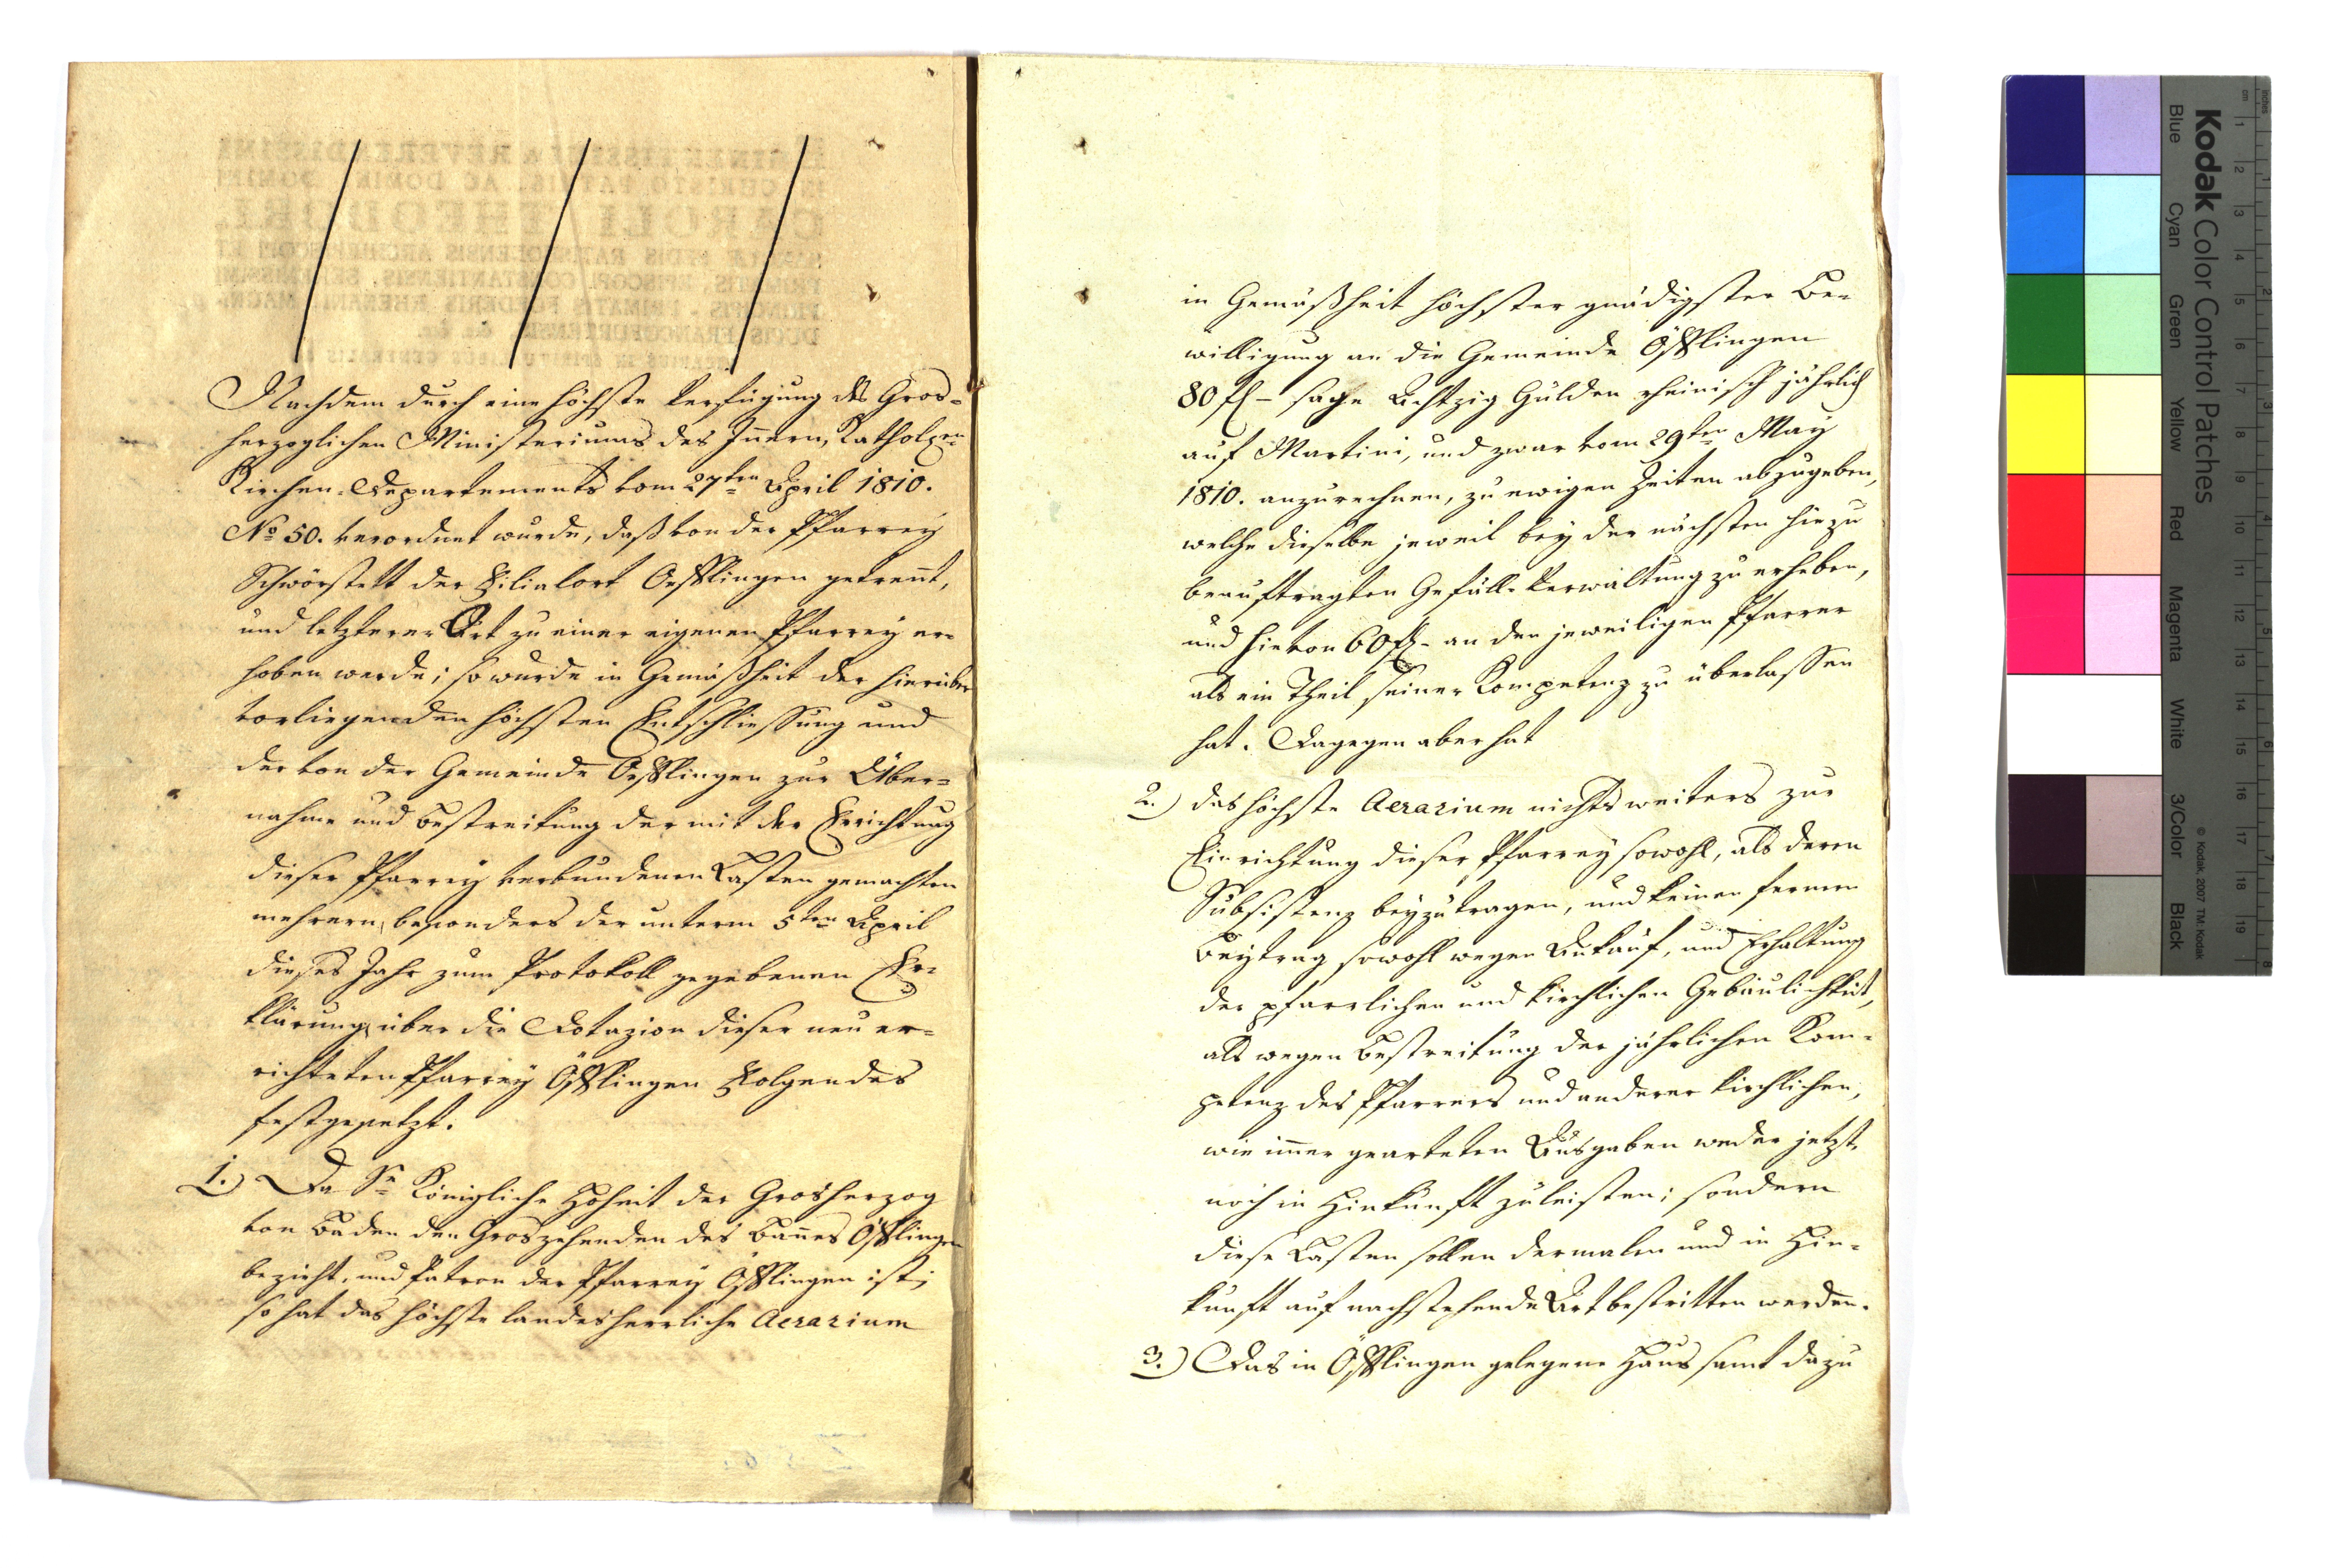 Nachdem durch eine höchste Verfügung des Gros-
herzoglichen Ministeriums des Innern, Katholn
Kirchen-Departements vom 27ten April 1810.
No 50. verordnet wurde, daß von der Pfarrey
Schwörstett der Filialort Oefflingen getrennt,
und letzterer Ort zu einer eigenen Pfarrey er-
hoben werde; so wurde in Gemäßheit der hierüber
vorliegenden höchsten Entschliessung und
der von der Gemeinde Oefflingen zur Über-
nahme und Bestreitung der mit der Errichtung
dieser Pfarrey verbundenen Lasten gemachten
mehrern, besonders der unterm 5ten April
dieses Jahr zum Protokoll gegebenen Er-
klärung über die Dotazion dieser neu er-
richteten Pfarrey Öfflingen Folgendes
festgesetzt.
1.) Da Se Königliche Hoheit der Grosherzog
von Baden den Groszehenden des Bannes Öfflingen
bezieht, und Patron der Pfarrey Öfflingen ist;
so hat das höchste landesherrliche Aerarium
in Gemäßheit höchster gnädigster Be-
willigung an die Gemeinde Öfflingen
80 fl – sage Achtzig Gulden rheinisch jährlich
auf Martini, und zwar vom 29ten May
1810. anzurechnen, zu ewigen Zeiten abzugeben,
welche dieselbe jeweil bey der nächsten hiezu
beauftragten Gefäll-Verwaltung zu erheben,
und hievon 60 fl – an den jeweiligen Pfarrer
als ein Theil seiner Kompetenz zu überlassen
hat. Dagegen aber hat
2.) das höchste Aerarium nichts weiters zur
Einrichtung dieser Pfarrey sowohl, als deren
Subsistenz beyzutragen, und keinen fernern
Beytrag sowohl wegen Ankauf, und Erhaltung
der pfarrlichen und kirchlichen Gebäulichkeit,
als wegen Bestreitung der jährlichen Kom-
petenz des Pfarrers und anderer kirchlichen,
wie immer gearteten Ausgaben weder jetzt,
noch in Hinkunft zu leisten; sondern
diese Lasten sollen dermalen und in Hin-
kunft auf nachstehende Art bestritten werden.
3.) Das in Öfflingen gelegene Haus samt dazu
Kodak Color Control Patches
Blue Cyan Green Yellow Red Magenta White 3/Color Black
© Kodak, 2007 TM: Kodak
cm 1 2 3 4 5 6 7 8 9 10 11 12 13 14 15 16 17 18 19
inches 1 2 3 4 5 6 7 8